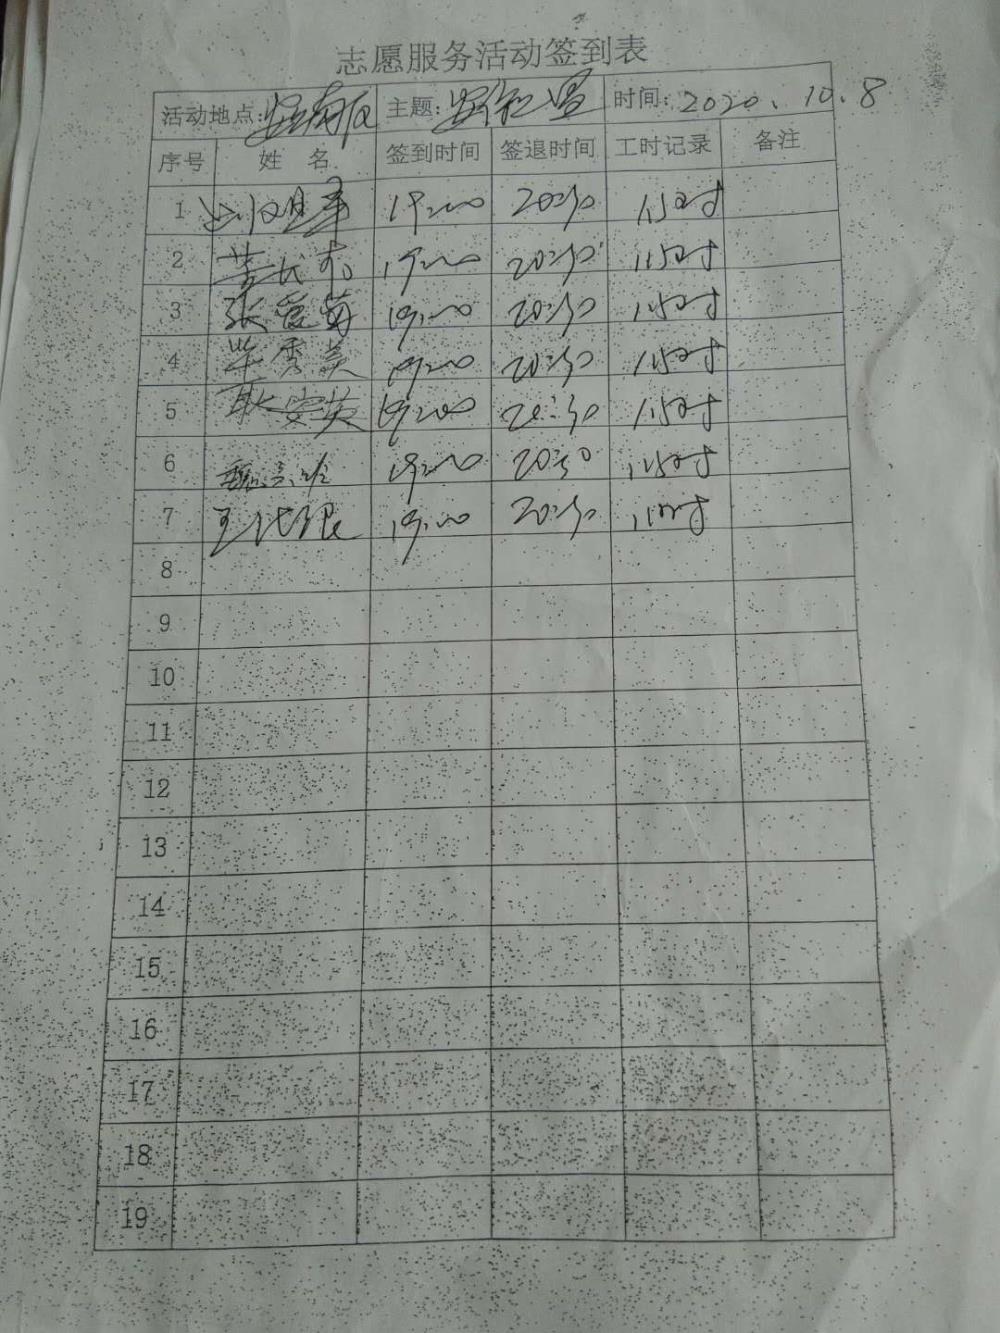 志愿服务活动签到表
活动地点: 主题: 时间: 2020.10.8
序号 姓名 签到时间 签退时间 工时记录 备注
1 19:00 20:30 1.5时
2 19:00 20:30 1.5时
3 张爱菊 19:00 20:30 1.5时
4 柴秀美 19:00 20:30 1.5时
5 耿安英 19:00 20:30 1.5时
6 19:00 20:30 1.5时
7 19:00 20:30
8
9
10
11
12
13
14
15
16
17
18
19